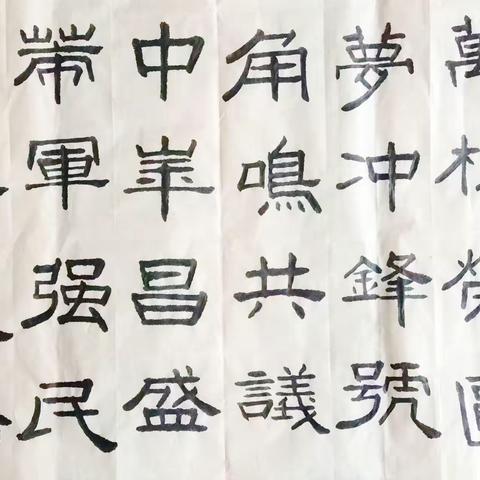 萬
夢冲鋒號
角鳴共議
中華昌盛
帶軍强民